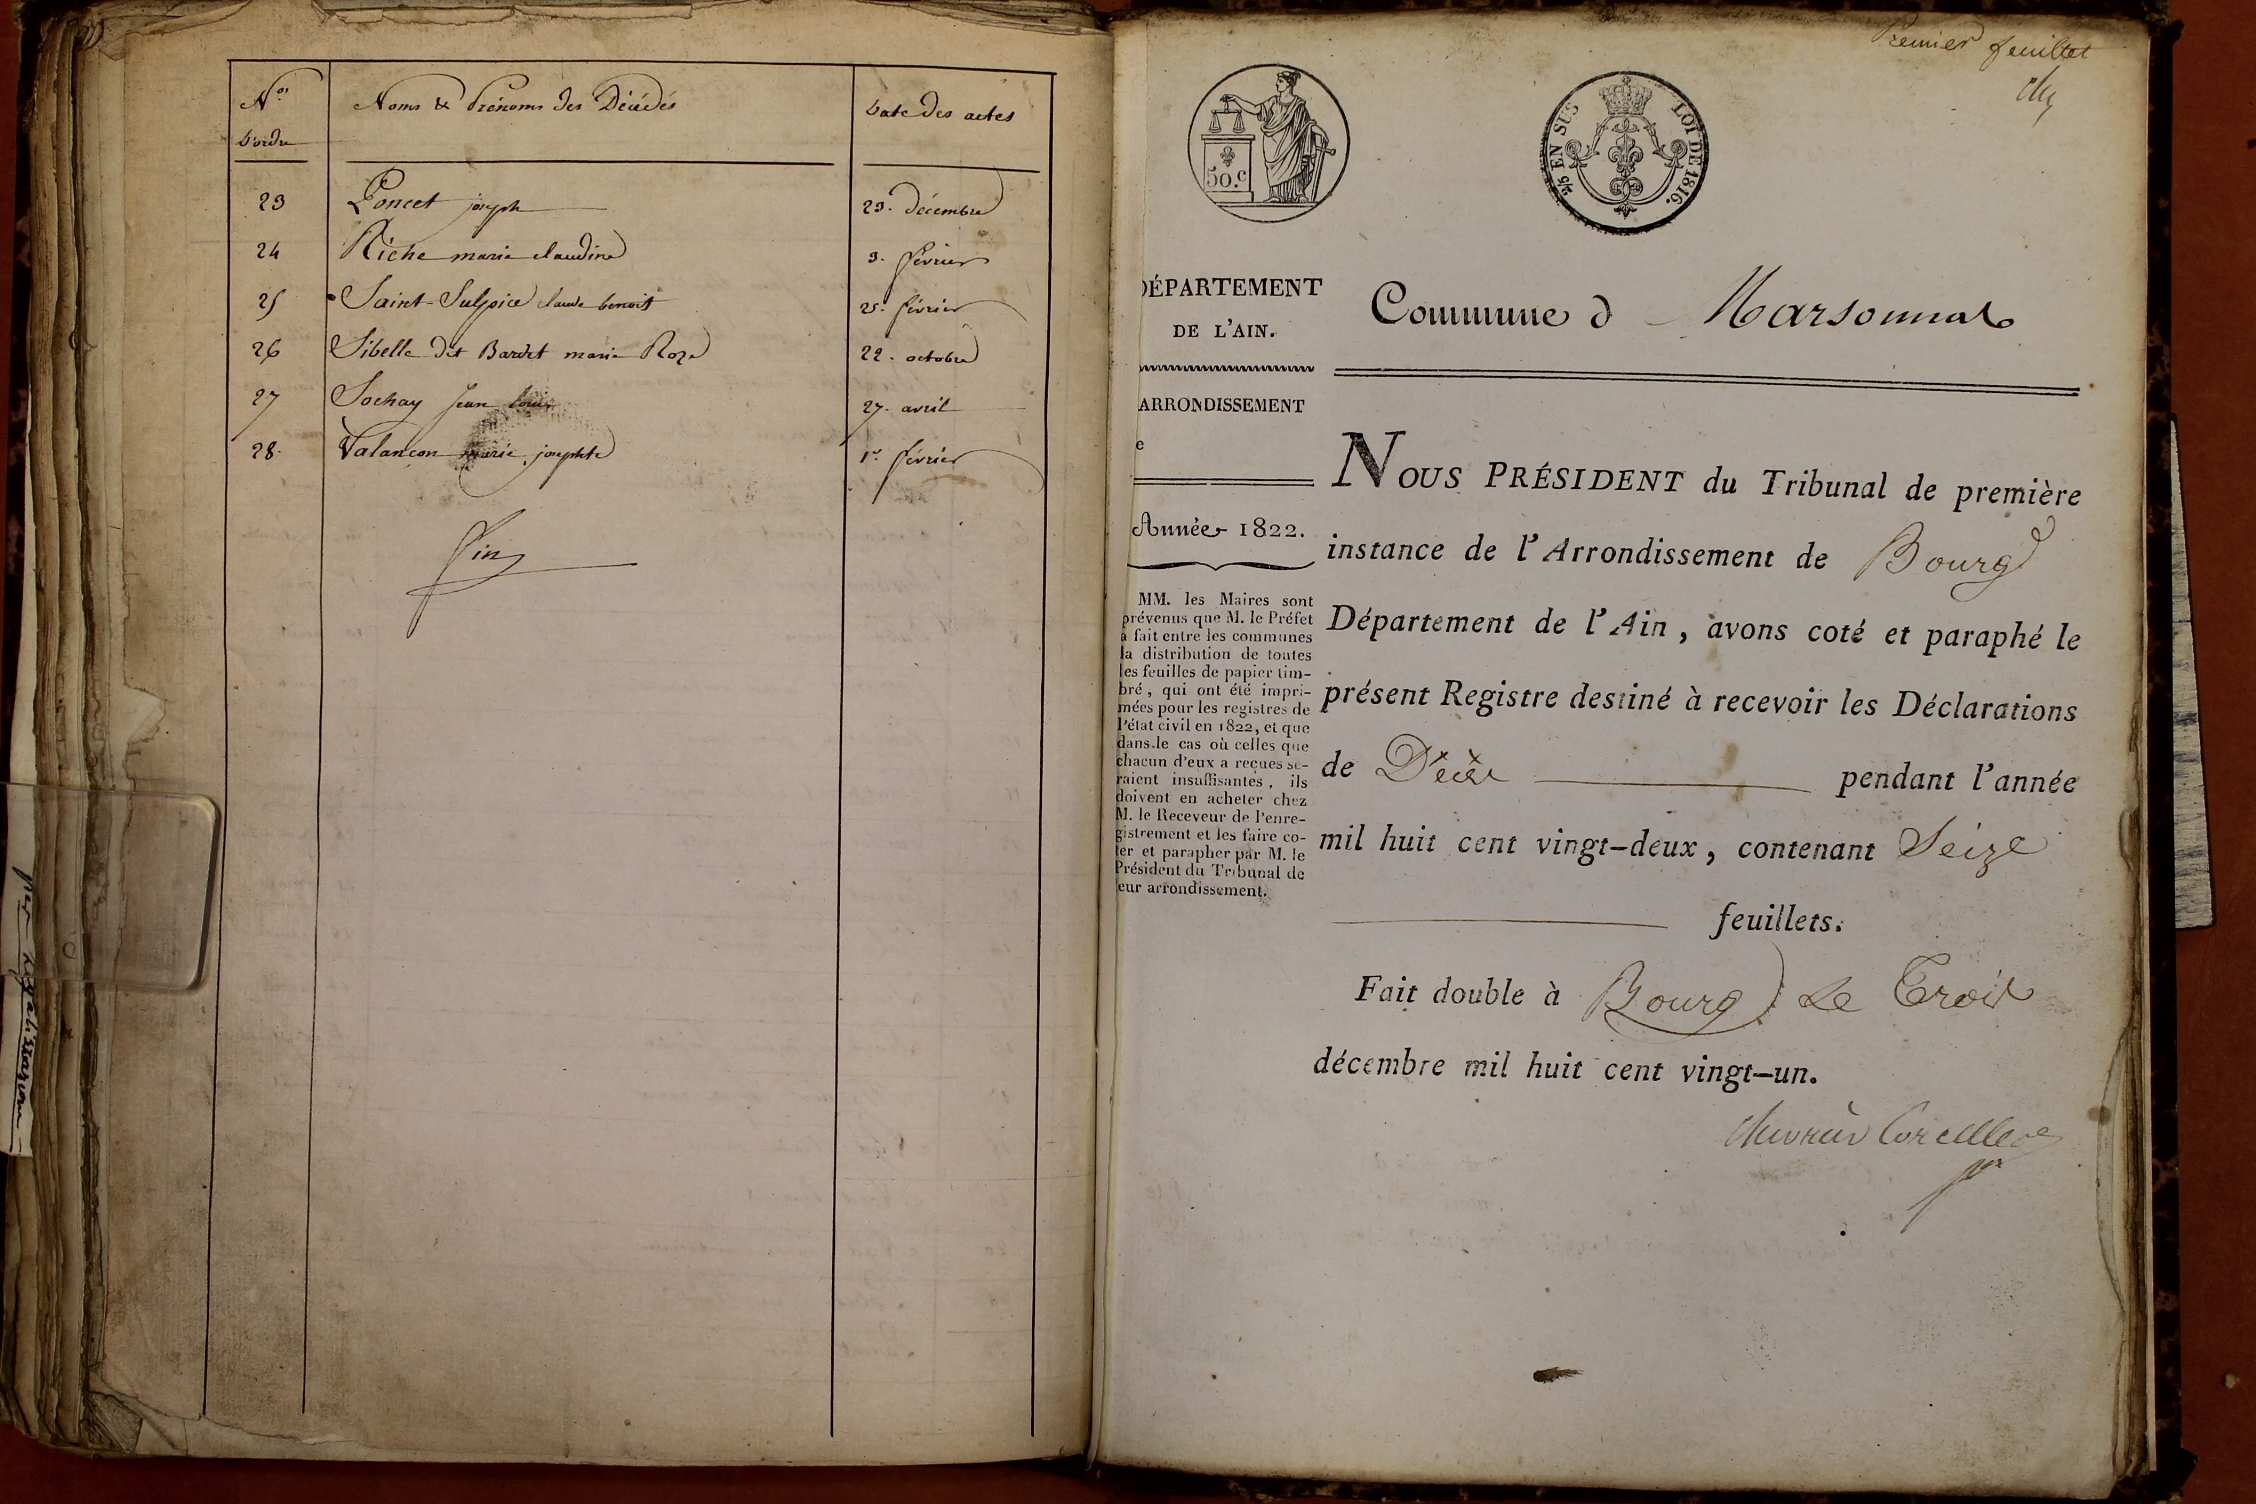 Nos
d'ordre
Noms & Prénoms des Décédés
Date des actes
23 Poncet joseph 23. décembre
24 Riche marie claudine 3. février
25 Saint-Sulpice claude benoit 25. février
26 Sibelle dit Bardet marie Roze 22. octobre
27 Sochay Jean louis 27. avril
28. Valançon marie josephte 1er février
fin
Premier feuillet
50.c
2/5 EN SUS LOI DE 1816.
DÉPARTEMENT
DE L'AIN.
Commune d Marsonnas
ARRONDISSEMENT
e
Année 1822.
MM. les Maires sont
prévenus que M. le Préfet
a fait entre les communes
la distribution de toutes
les feuilles de papier tim-
bré, qui ont été impri-
mées pour les registres de
l'état civil en 1822, et que
dans le cas où celles que
chacun d'eux a reçues se-
raient insuffisantes, ils
doivent en acheter chez
M. le Receveur de l'enre-
gistrement et les faire co-
ter et parapher par M. le
Président du Tribunal de
leur arrondissement.
NOUS PRÉSIDENT du Tribunal de première
instance de l'Arrondissement de Bourg
Département de l'Ain, avons coté et paraphé le
présent Registre destiné à recevoir les Déclarations
de Décès pendant l'année
mil huit cent vingt-deux, contenant Seize
feuillets.
Fait double à Bourg Le Trois
décembre mil huit cent vingt-un.